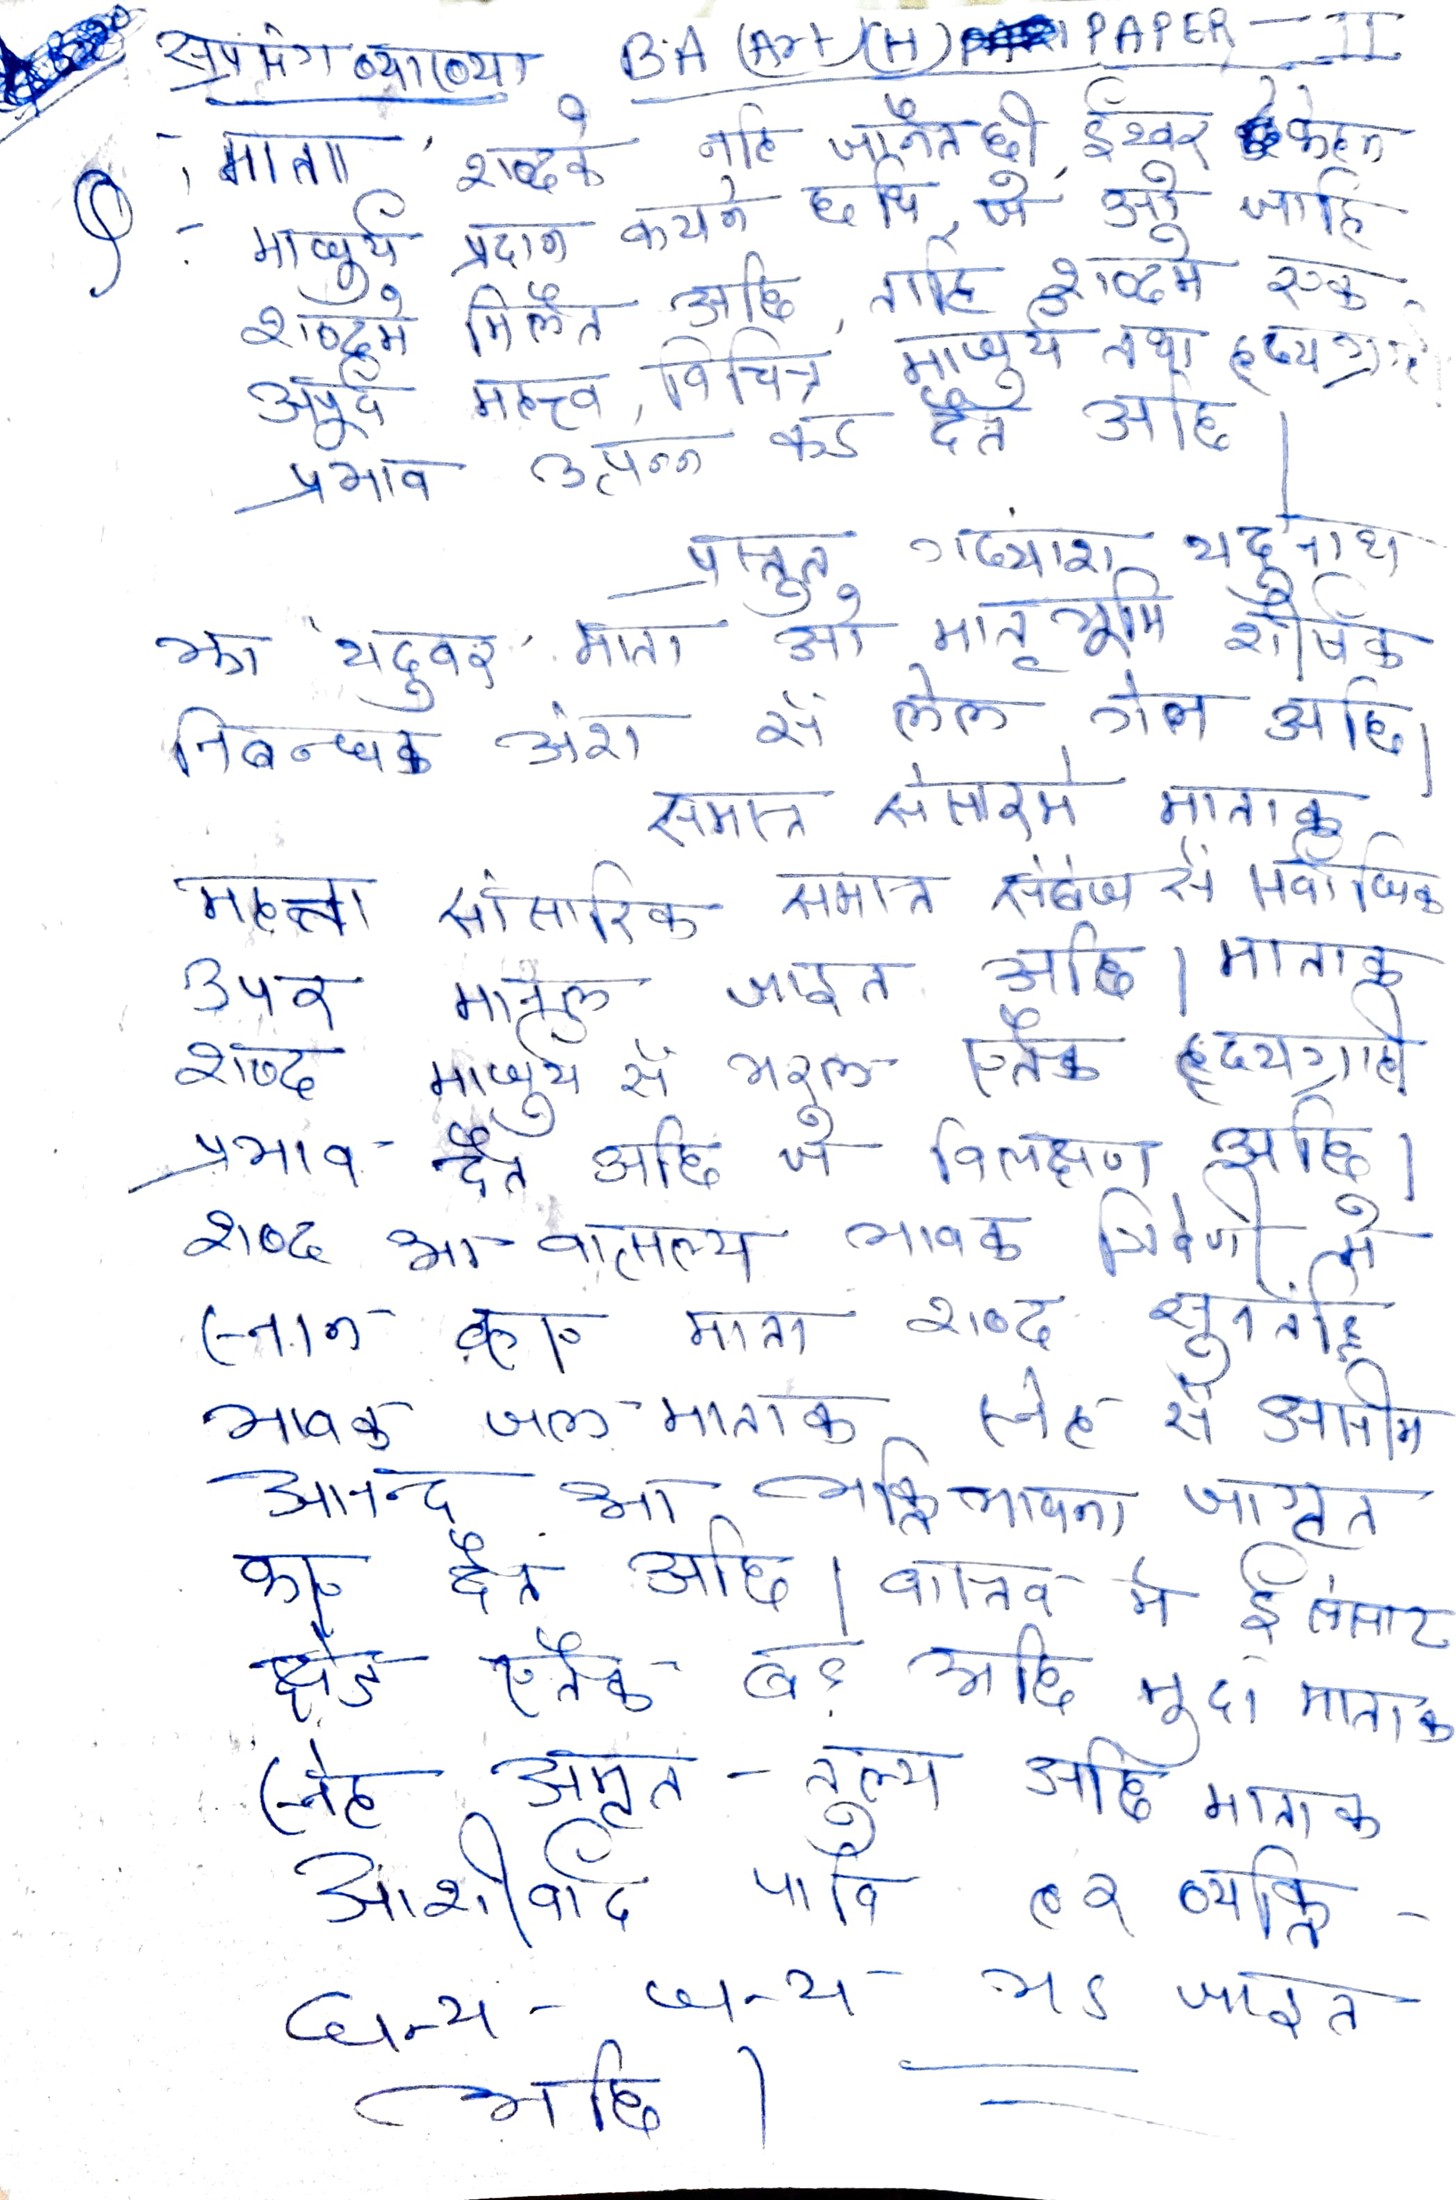 सप्रसंग व्याख्या B.A (Art) (H) PAPER - II
'माता' शब्दकेँ नहि जानैत छी, ईश्वर केहन
माधुर्य प्रदान कयने छथि, जे ओ जाहि
शब्दमे मिलैत अछि, ताहि शब्दमे एक
अपूर्व महत्त्व, विचित्र माधुर्य तथा हृदयग्राही
प्रभाव उत्पन्न कऽ दैत अछि।
प्रस्तुत गद्यांश यदुनाथ
झा 'यदुवर' माता ओ मातृभूमि शीर्षक
निबन्धक अंश सँ लेल गेल अछि।
समस्त संसारमे माताक
महत्ता सांसारिक समस्त संबंध सँ सर्वाधिक
उपर मानल जाइत अछि। माताक
शब्द माधुर्य सँ भरल एतेक हृदयग्राही
प्रभाव दैत अछि जे विलक्षण अछि।
शब्द आ वात्सल्य भावक त्रिवेणी मे
स्नान कए माता शब्द सुनतहि
भावक जल माताक स्नेह सँ असीम
आनन्द आ भक्तिभावना जागृत
कए दैत अछि। वास्तव मे ई संसार
एतेक अछि मुदा माताक
स्नेह अमृत - तुल्य अछि माताक
आशीर्वाद पावि हर व्यक्ति
धन्य - धन्य भऽ जाइत
अछि।